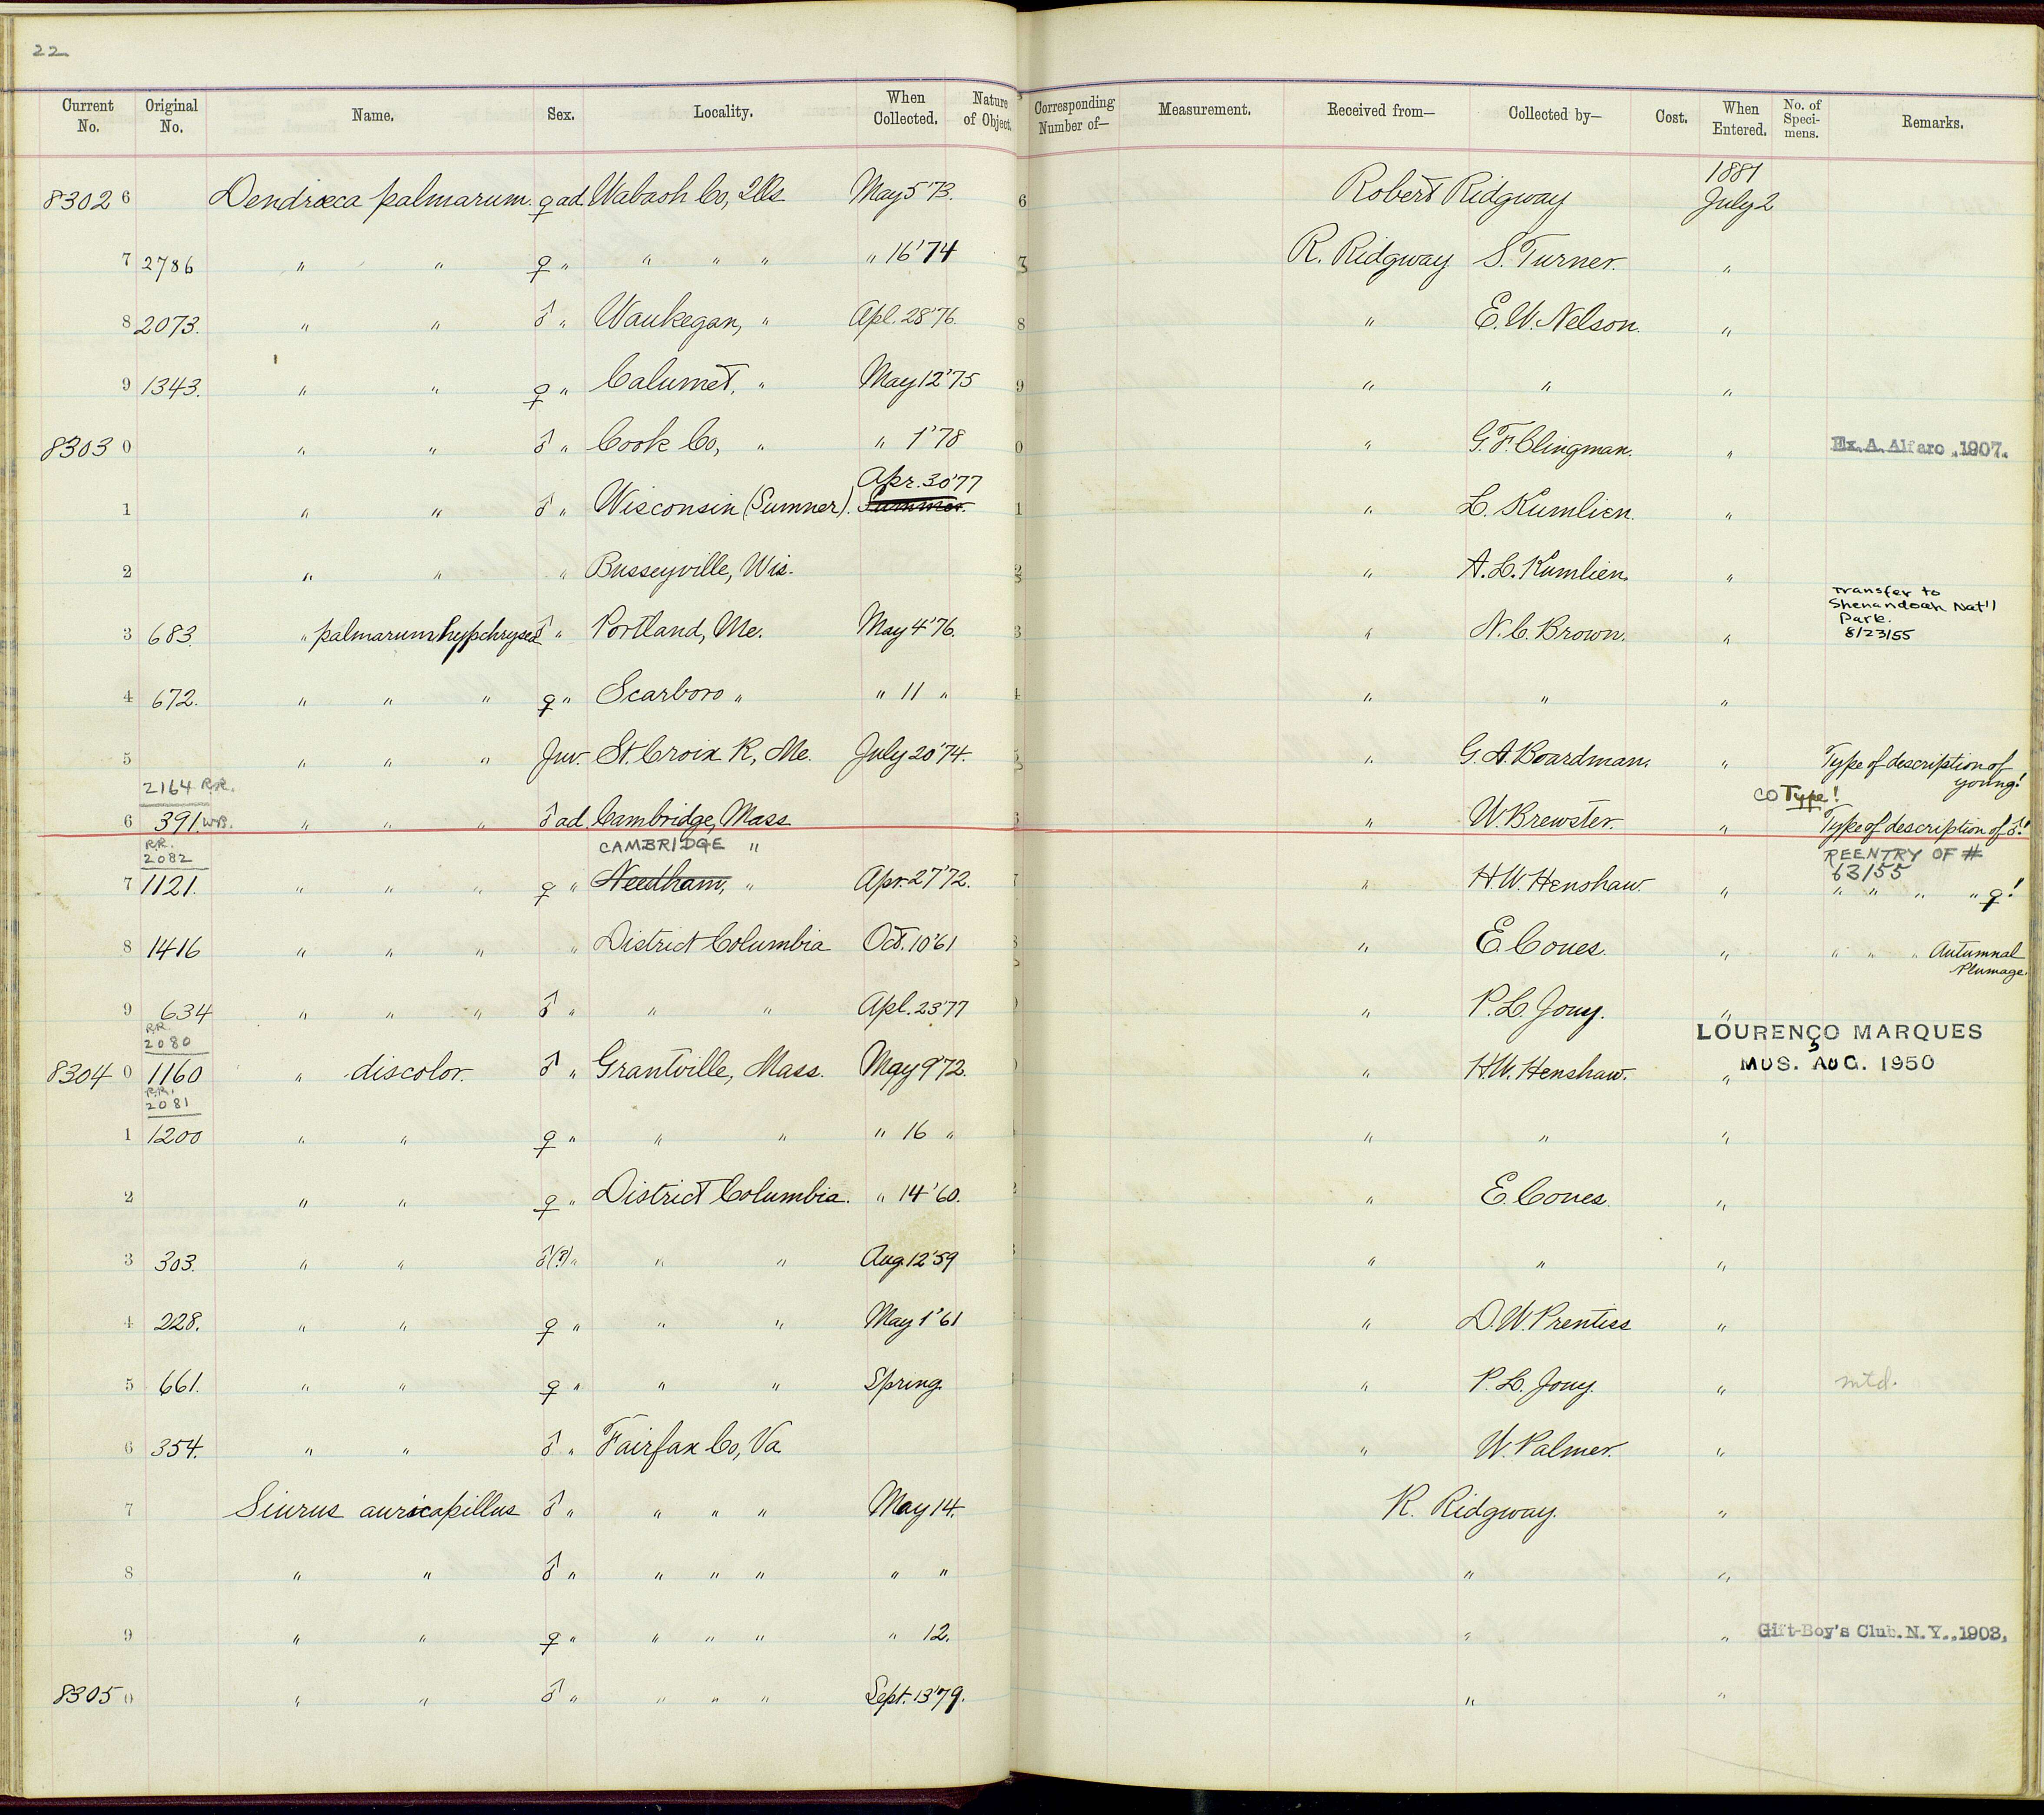 22
Current No. Original No. Name. Sex. Locality. When Collected. Nature of Object. Corresponding Number of— Measurement. Received from— Collected by— Cost. When Entered. No. of Specimens. Remarks.
1881
8302 6 Dendrœca palmarum. ♀ ad. Wabash Co, Ills May 5 '73. 6 Robert Ridgway July 2
7 2786 " " ♀ " " " " " 16 '74 7 R. Ridgway S. Turner. "
8 2073. " " ♂ " Waukegan, " Apl. 28 '76. 8 " E. W. Nelson. "
9 1343. " " ♀ " Calumet, " May 12 '75 9 " " "
8303 0 " " ♂ " Cook Co, " " 1 '78 0 " G. F. Clingman. " Ex. A. Alfaro .1907.
Apr. 30 '77
1 " " ♂ " Wisconsin (Sumner). Summer. 1 " L. Kumlien. "
2 " " " Busseyville, Wis. 2 " A. L. Kumlien. "
Transfer to
Shenandoah Nat'l
Park.
8/23/55
3 683. " palmarum hypochrysea ♂ " Portland, Me. May 4 '76. 3 " N. C. Brown. "
4 672. " " " ♀ " Scarboro " " 11 " 4 " " "
5 " " " Juv. St. Croix R, Me. July 20 '74. 5 " G. A. Boardman. " Type of description of young!
2164 R.R. CO Type!
6 391. W.B. " " " ♂ ad. Cambridge, Mass " W. Brewster. " Type of description of ♂!
R.R. 2082 CAMBRIDGE " REENTRY OF # 63155
7 1121. " " " ♀ " Needham, " Apr. 27 '72. 7 " H. W. Henshaw. " " " " " ♀!
8 1416 " " " " District Columbia Oct. 10 '61 8 " E. Coues. " " " " Autumnal Plumage.
9 634 " " " ♂ " " " Apl. 23 '77 " P. L. Jouy. "
R.R. 2080 LOURENÇO MARQUES
8304 0 1160 " discolor. ♂ " Grantville, Mass. May 9 '72. " H. W. Henshaw. " MUS. AUG. 1950
R.R. 2081
1 1200 " " ♀ " " " " 16 " " " "
2 " " ♀ " District Columbia. " 14 '60. " E. Coues. "
3 303. " " ♂(?) " " " Aug. 12 '59 " " "
4 228. " " ♀ " " " May 1 '61 " D. W. Prentiss "
5 661. " " ♀ " " " Spring. " P. L. Jouy. " mtd.
6 354. " " ♂ " Fairfax Co, Va. " W. Palmer. "
7 Siurus auricapillus ♂ " " " " May 14. R. Ridgway. "
8 " " ♂ " " " " " " " "
9 " " ♀ " " " " " 12. " " Gift-Boy's Club. N. Y., 1903,
8305 0 " " ♂ " " " " Sept. 13 '79. " "